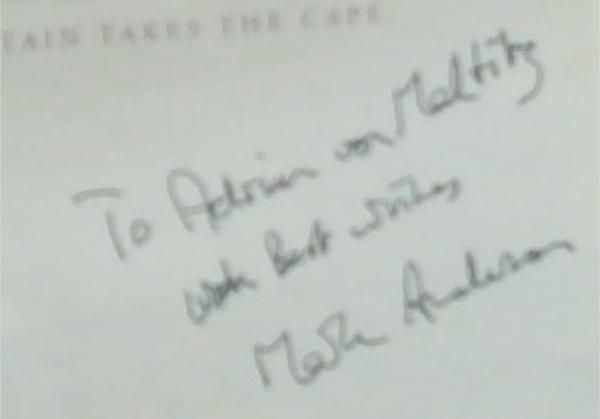 TAIN TAKES THE CAPE
To Adrian von Maltitz
with Best wishes
Mark Anderson